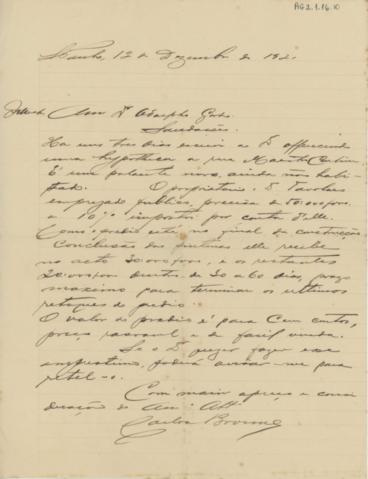 AG2.1.16.10
S. Paulo, 12 de Dezembro de 192
Amo Dr Adolpho Gordo
Saudações.
Ha uns tres dias enviei a Dr offerecendo
uma hypotheca a rua Maestro Cardim
É um palacete novo, ainda não habi-
tado. O proprietario Dr
empregado publico, precisa de 50.000$000
a 10% impostos por conta d'elle.
Como o predio está no final da construcção
Conclusão das pinturas elle recebe
no acto 30.000$000, e os restantes
20.000$000 dentro de 30 a 60 dias, prazo
maximo para terminar os ultimos
retoques do predio.
O valor do predio é para Cem contos,
preço rasoavel e de facil venda.
Se o Dr quizer fazer esse
emprestimo, poderá avisar-me para
retel-o.
Com maior apreço e consi
deração do Amo Atto
Carlos